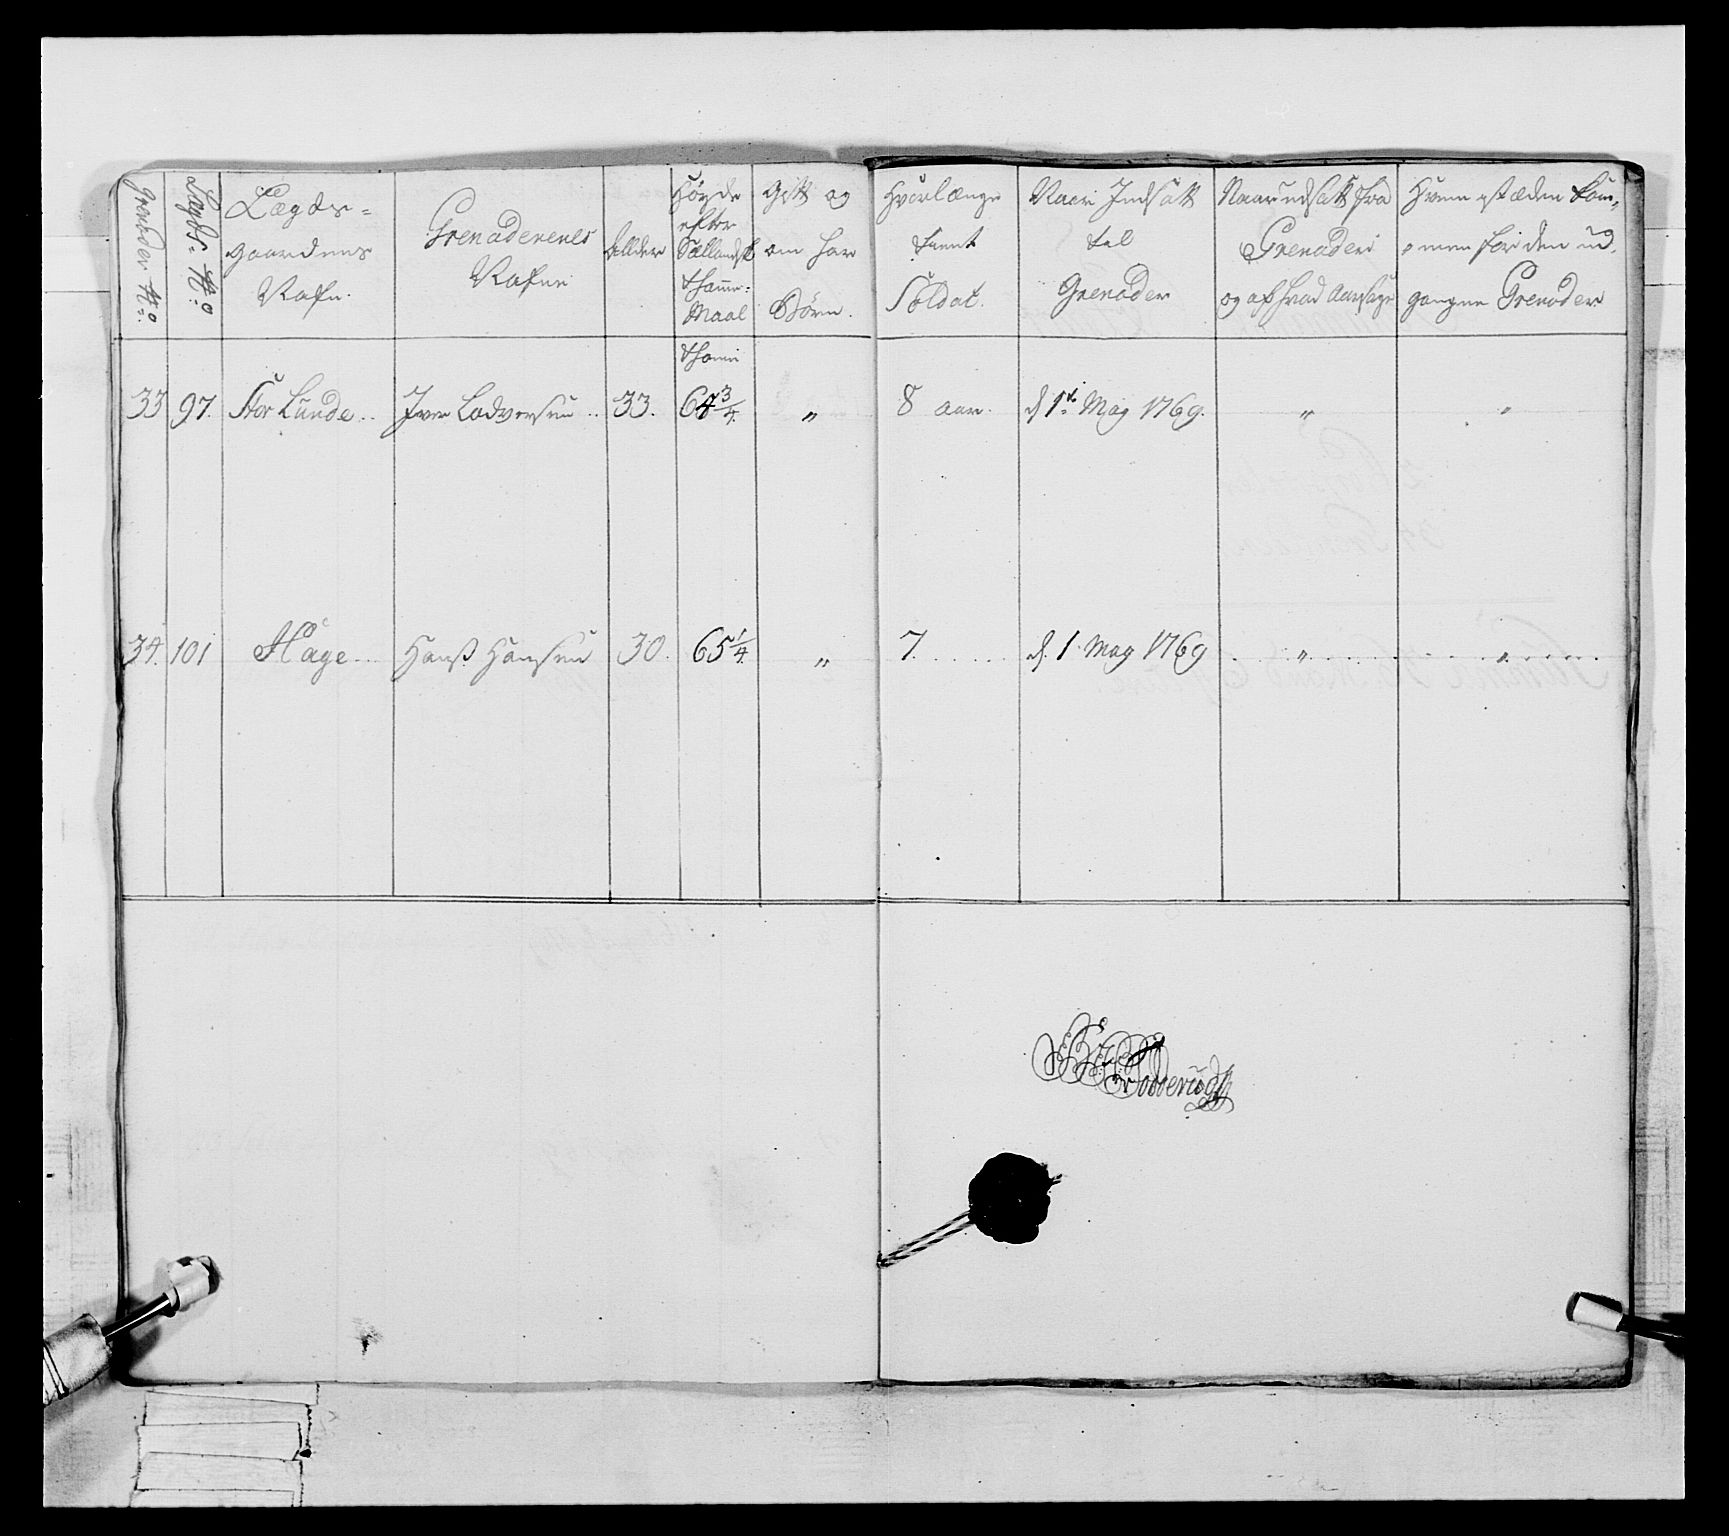 Grenader No:
Lægds No:
Lægds-
gaardens
Nafn.
Grenaderenes
Nafne
Allder
Høyde
efter
Sællandsk
Thomme-
Maal
Gift og
om har
Børn.
Hvorlænge
tient
Soldat.
Naar Indsatt
til
Grenader
Naar udsatt fra
Grenader
og af hvad Aarsage
Hvem i stæden kom-
men for den ud-
gangne Grenader
Thomme
33 97. Stor Lunde Iver Lodversen 33. 64 3/4. " 8 aar. d 1t May 1769. " "
34. 101 Hage Hanß Hansen 30. 65 1/4. " 7. d. 1 May 1769 " "